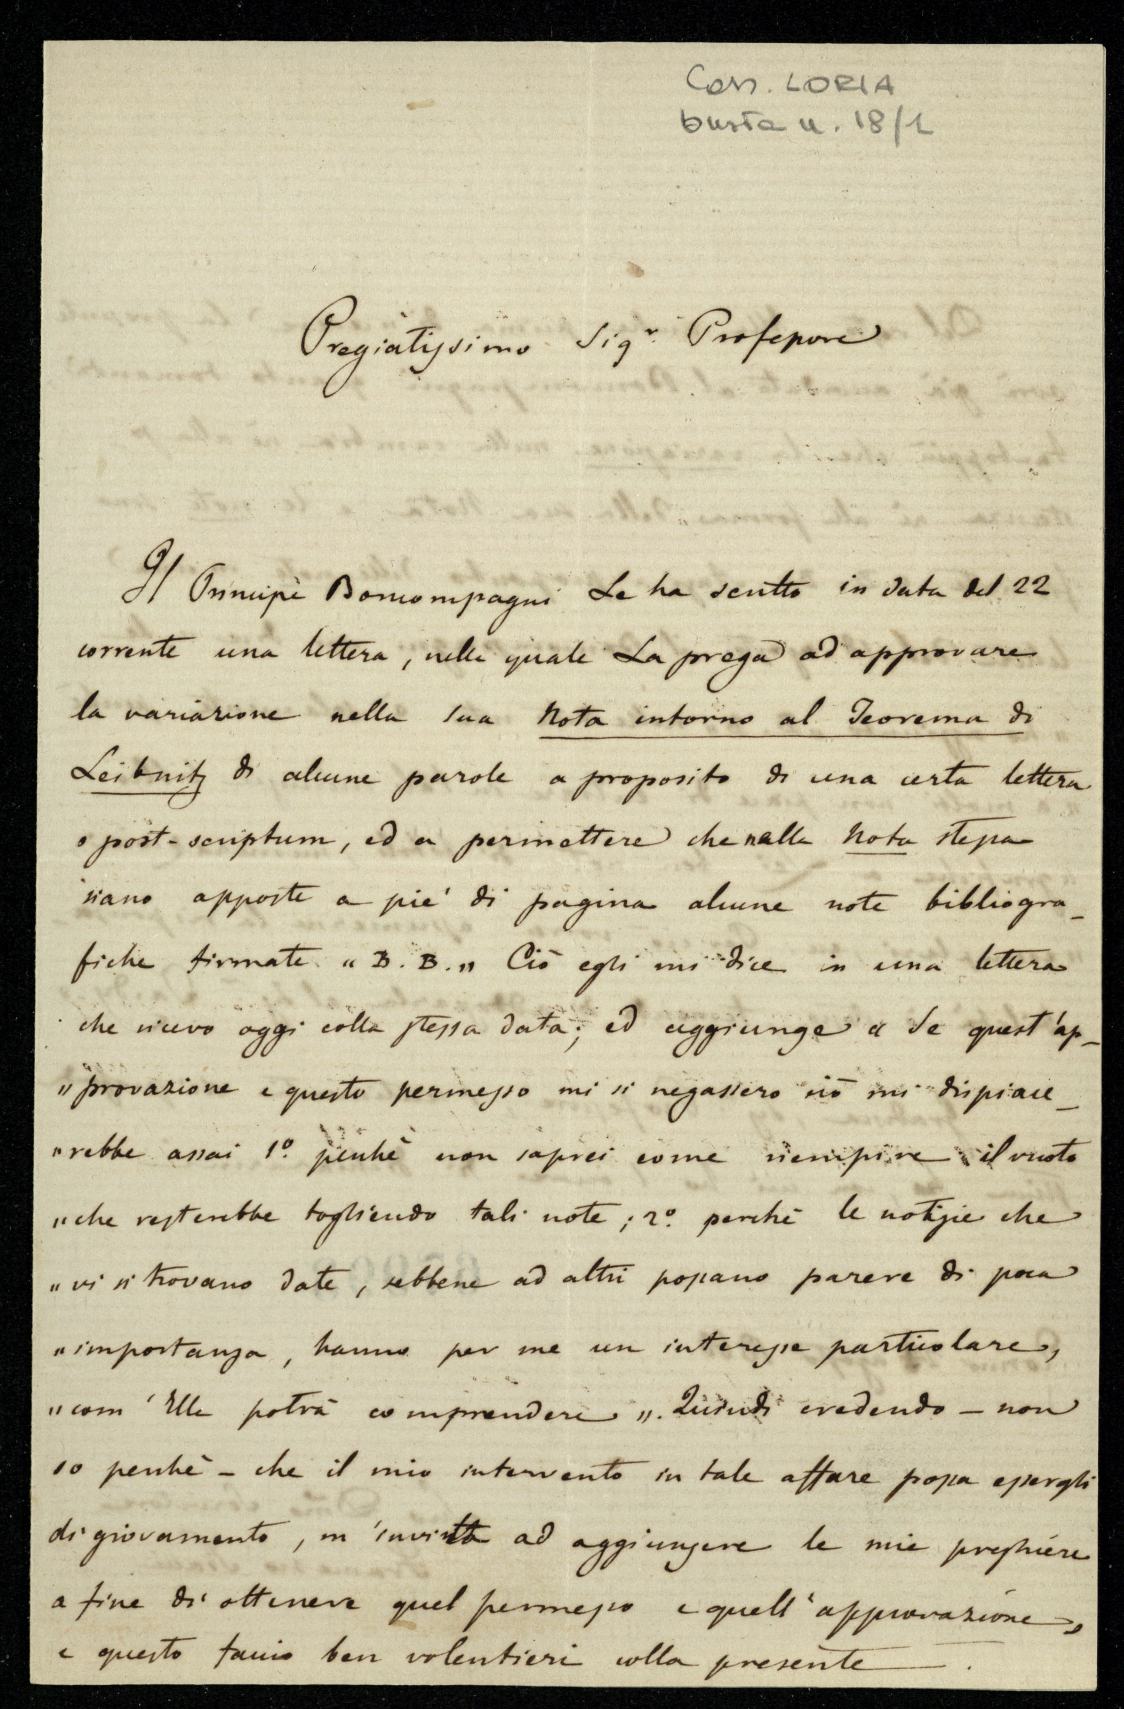 Corr. LORIA
busta n. 18/1
Pregiatissimo Sigr. Professore
Il Principe Boncompagni Le ha scritto in data del 22
corrente una lettera, nella quale La prega ad approvare
la variazione nella sua Nota intorno al Teorema di
Leibnitz di alcune parole a proposito di una certa lettera
o post-scriptum, ed a permettere che nella Nota stessa
siano apposte a piè di pagina alcune note bibliogra-
fiche firmate "B. B." Ciò egli mi dice in una lettera
che ricevo oggi colla stessa data; ed aggiunge "Se quest'ap-
"provazione e questo permesso mi si negassero ciò mi dispiace-
"rebbe assai 1º perchè non saprei come riempire il vuoto
"che resterebbe togliendo tali note; 2º perchè le notizie che
"vi si trovano date, sebbene ad altri possano parere di poca
"importanza, hanno per me un interesse particolare,
"com'Ella potrà comprendere". Quindi credendo - non
so perchè - che il mio intervento in tale affare possa essergli
di giovamento, m'invita ad aggiungere le mie preghiere
a fine di ottenere quel permesso e quell'approvazione,
e questo faccio ben volentieri colla presente.